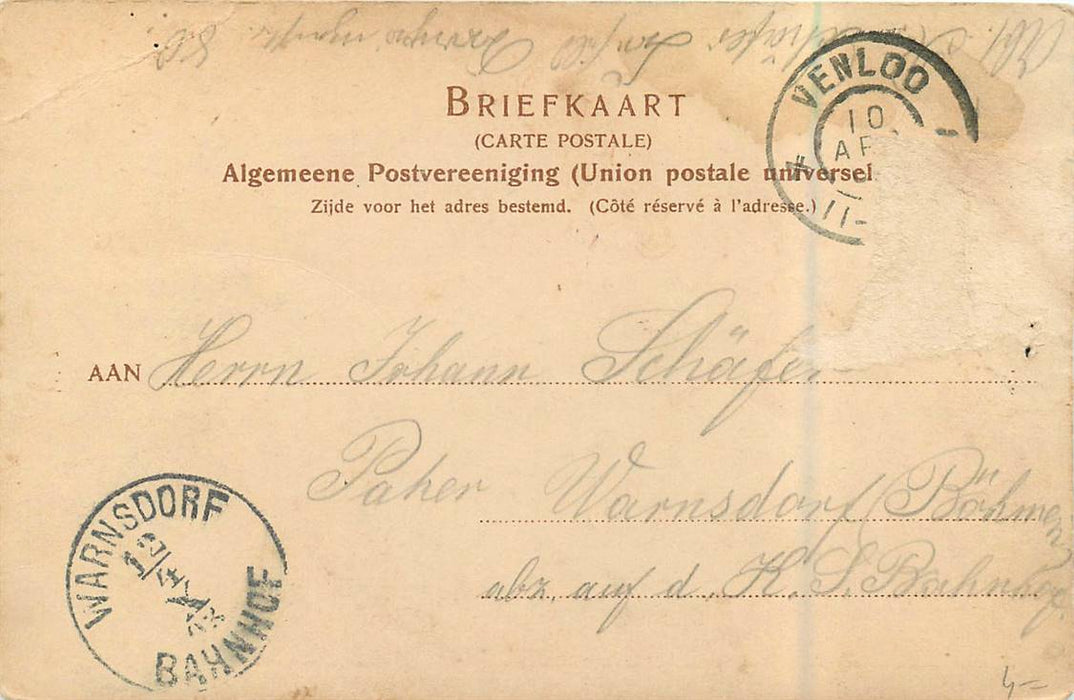 BRIEFKAART
(CARTE POSTALE)
Algemeene Postvereeniging (Union postale universel
Zijde voor het adres bestemd. (Côté réservé à l'adresse.)
VENLOO
10
AP
AAN Herrn Johann Schäfer
Paher Warnsdorf (Böhmen)
abz. auf d. K. S. Bahnhof
WARNSDORF
12/4
BAHNHOF